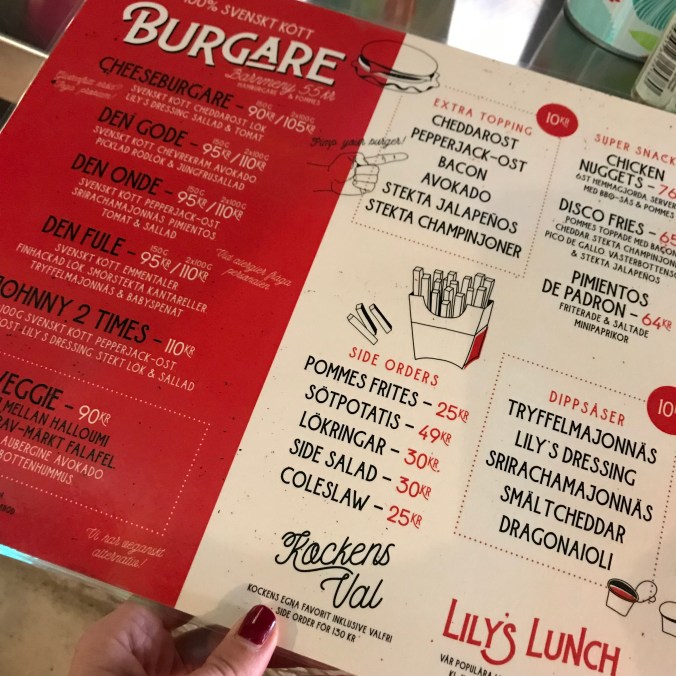 100% SVENSKT KÖTT
BURGARE
Barnmeny 55kr
HAMBURGARE & POMMES
CHEESEBURGARE - 150G 90KR / 2x100G 105KR
SVENSKT KÖTT CHEDDAROST LÖK
LILY'S DRESSING SALLAD & TOMAT
DEN GODE - 150G 95KR / 2x100G 110KR
SVENSKT KÖTT CHEVREKRAM AVOKADO
PICKLAD RÖDLÖK & JUNGFRUSALLAD
DEN ONDE - 150G 95KR / 2x100G 110KR
SVENSKT KÖTT PEPPERJACK-OST
SRIRACHAMAJONNÄS PIMIENTOS
TOMAT & SALLAD
DEN FULE - 150G 95KR / 2x100G 110KR
SVENSKT KÖTT EMMENTALER
FINHACKAD LÖK SMÖRSTEKTA KANTARELLER
TRYFFELMAJONNÄS & BABYSPENAT
Vid allergier fråga
personalen
JOHNNY 2 TIMES - 110KR
100G SVENSKT KÖTT PEPPERJACK-OST
OST LILY'S DRESSING STEKT LÖK & SALLAD
VEGGIE - 90KR
MELLAN HALLOUMI
RAV-MÄRKT FALAFEL
AUBERGINE AVOKADO
ROTTENHUMMUS
Vi har veganskt
alternativ!
Pimp your burger!
EXTRA TOPPING
10KR
CHEDDAROST
PEPPERJACK-OST
BACON
AVOKADO
STEKTA JALAPEÑOS
STEKTA CHAMPINJONER
SIDE ORDERS
POMMES FRITES - 25KR
SÖTPOTATIS - 49KR
LÖKRINGAR - 30KR
SIDE SALAD - 30KR
COLESLAW - 25KR
Kockens
Val
KOCKENS EGNA FAVORIT INKLUSIVE VALFRI
SIDE ORDER FÖR 130 KR
SUPER SNACK
CHICKEN
NUGGETS - 76
6ST HEMMAGJORDA SERVER
MED BBQ-SÅS & POMMES
DISCO FRIES - 65
POMMES TOPPADE MED BACON
CHEDDAR STEKTA CHAMPINJON
PICO DE GALLO VÄSTERBOTTENSO
& STEKTA JALAPEÑOS
PIMIENTOS
DE PADRON - 64KR
FRITERADE & SALTADE
MINIPAPRIKOR
DIPPSÅSER
10
TRYFFELMAJONNÄS
LILY'S DRESSING
SRIRACHAMAJONNÄS
SMÄLTCHEDDAR
DRAGONAIOLI
LILY'S LUNCH
VÅR POPULÄRA